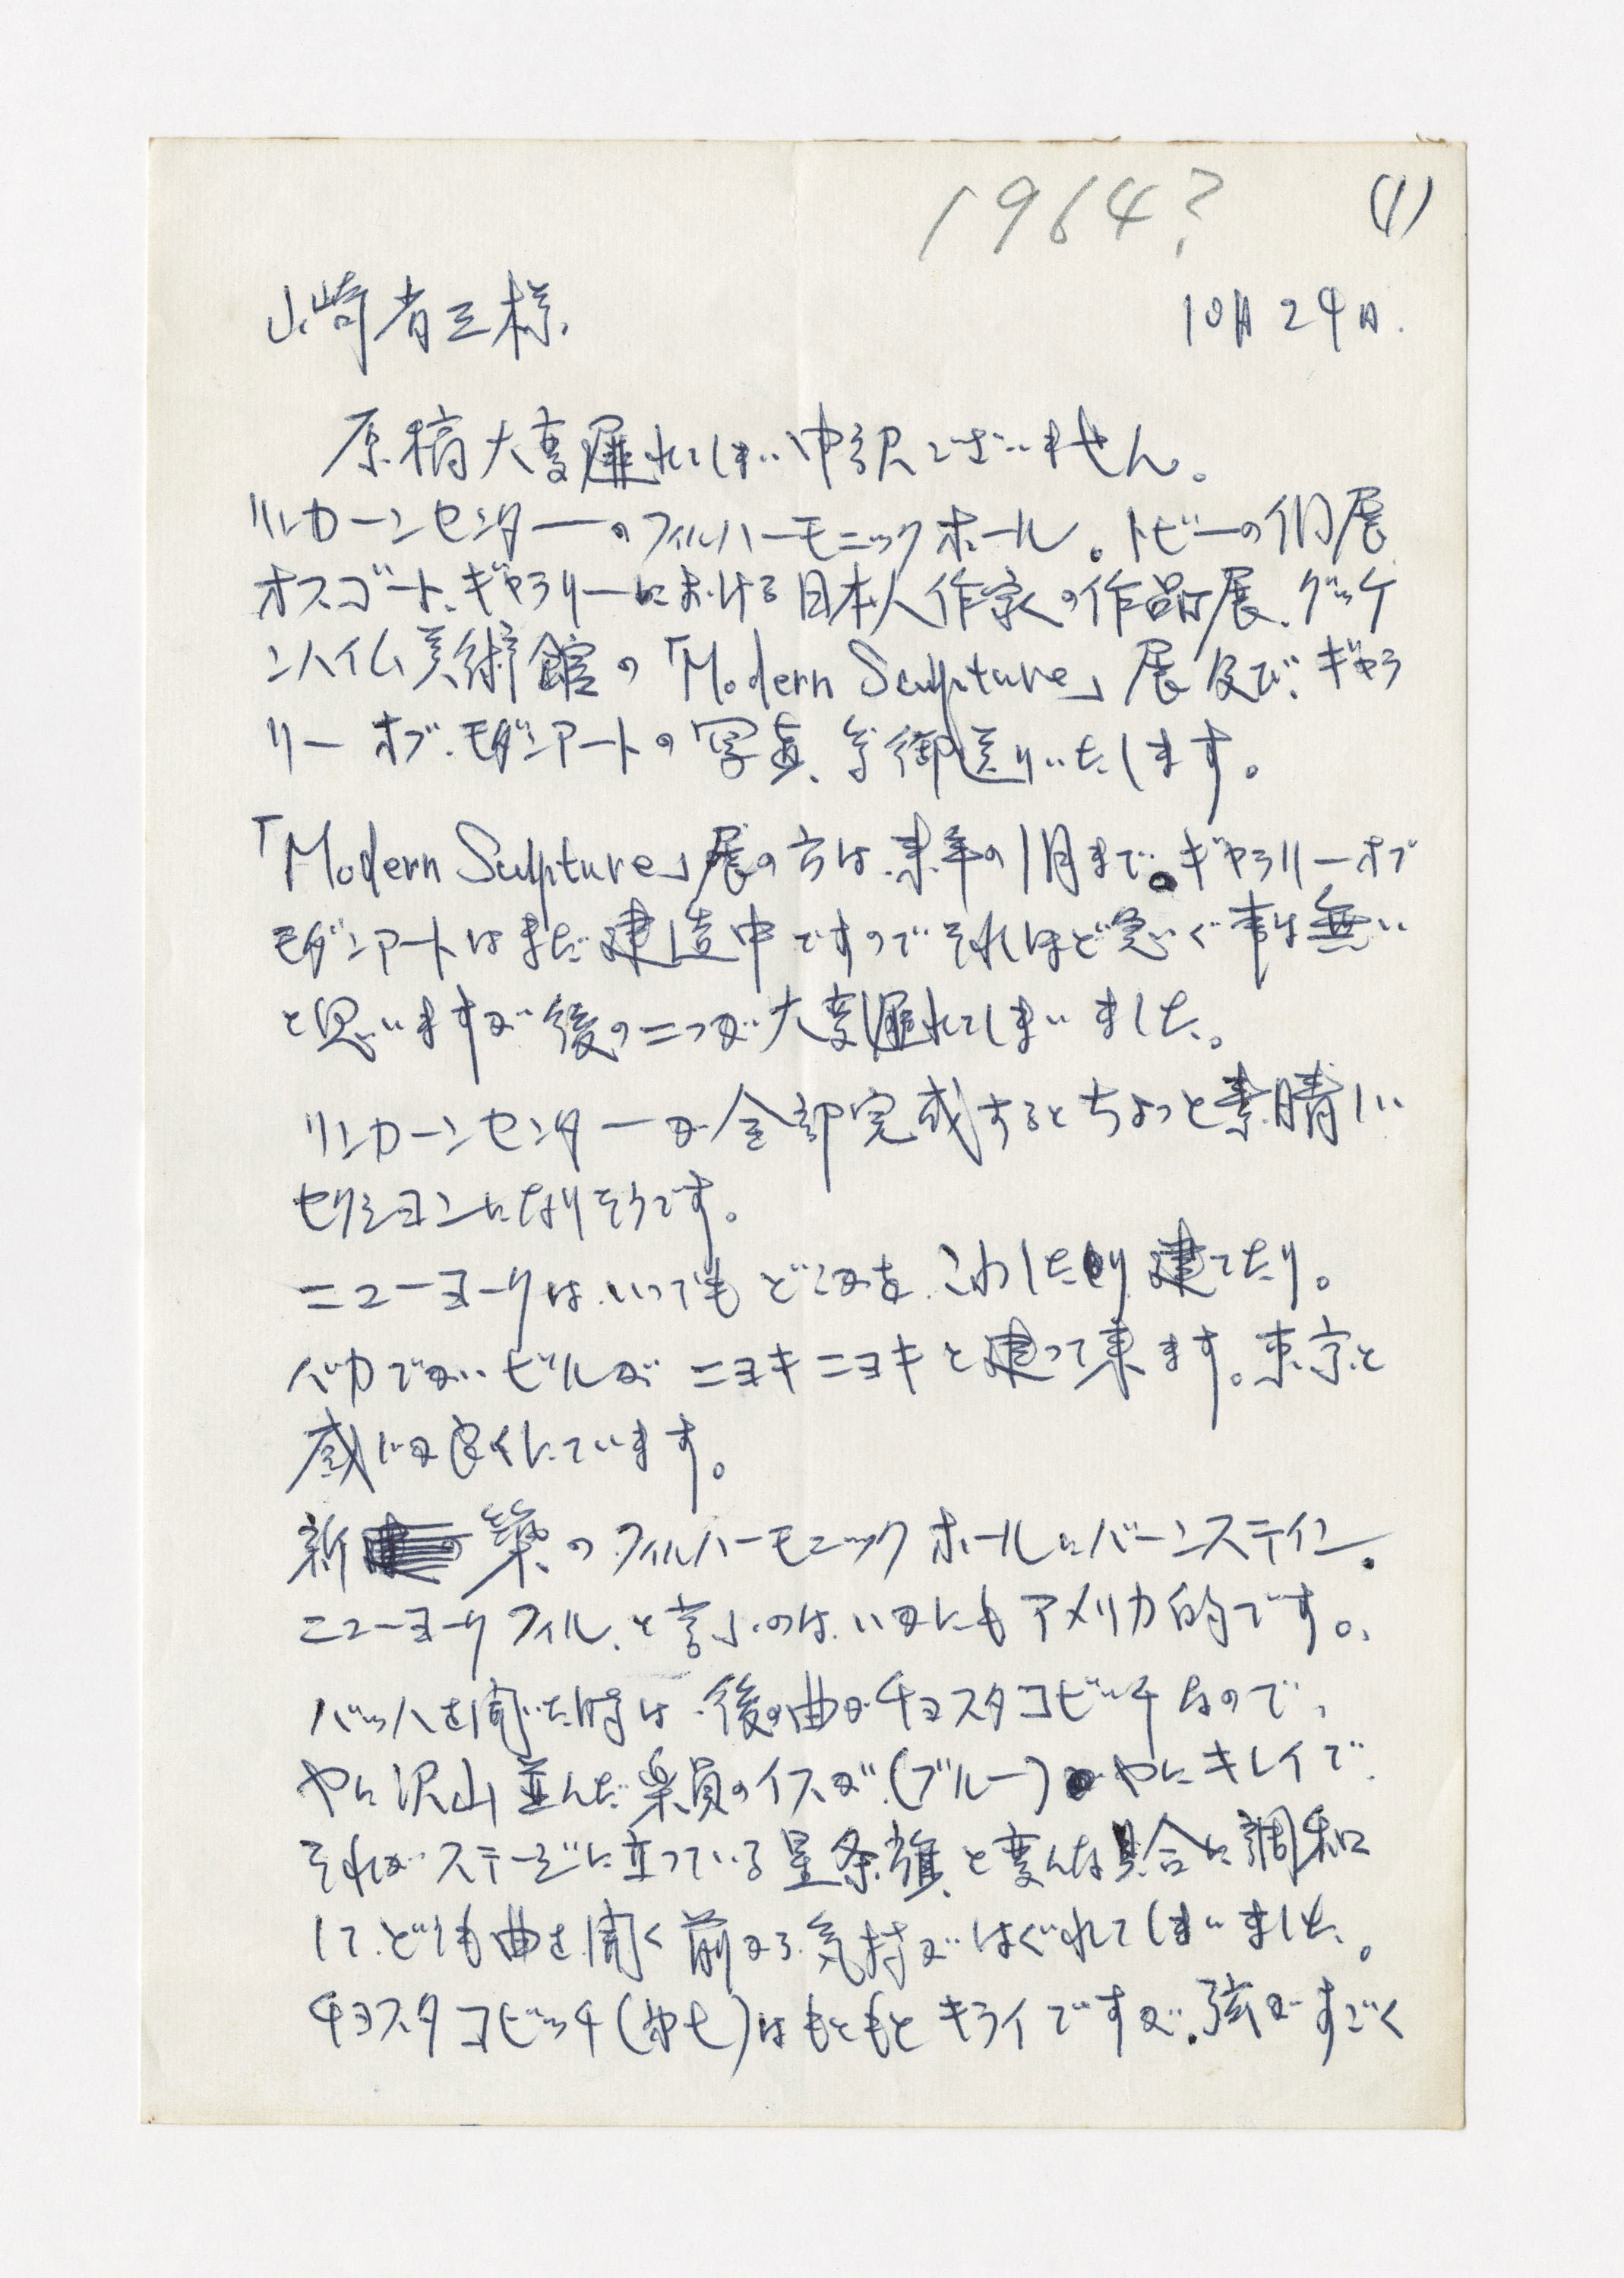 1964?
(1)
山崎省三様、
10月24日.
原稿大変遅れてしまい申訳ございません。
リンカーンセンターのフィルハーモニックホール。トビーの個展
オスゴート、ギャラリーにおける日本人作家の作品展、グッケ
ンハイム美術館の「Modern Sculpture」展及び、ギャラ
リー オブ.モダンアートの写真、等御送りいたします。
「Modern Sculpture」展の方は、来年の1月まで。ギャラリーオブ
モダンアートはまだ建造中ですのでそれほど急ぐ事は無い
と思いますが後の二つが大変遅れてしまいました。
リンカーンセンターが全部完成するとちょっと素晴しい
セクションになりそうです。
ニューヨークは、いつでもどこかを、こわしたり建てたり。
バカでかいビルがニョキニョキと建って来ます。東京と
感じが良くにています。
新築のフィルハーモニックホールにバーンスティン。
ニューヨークフィル、と言ふのは、いかにもアメリカ的です。
バッハを聞いた時は、後の曲がチョスタコビッチなので、
やに沢山並んだ楽員のイスが、(ブルー)やにキレイで、
それがステージに立っている星条旗、と変んな具合に調和
して、どうも曲を聞く前から気持がはぐれてしまいました。
チョスタコビッチ(か七)はもともとキライですが、弦がすごく